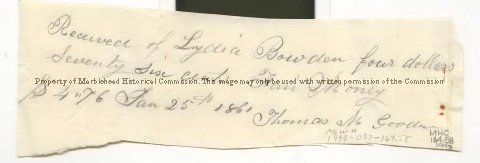 Received of Lydia Bowden four dollars
Seventy Six cents Fair Money
Property of Marblehead Historical Commission. This image may only be used with written permission of the Commission.
$4"76 Jan 25th 1861
Thomas M Goodwin
MHC
164.5B